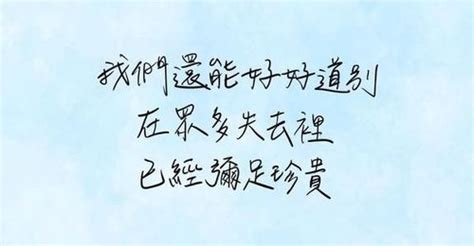 我們還能好好道別
在眾多失去裡
已經彌足珍貴